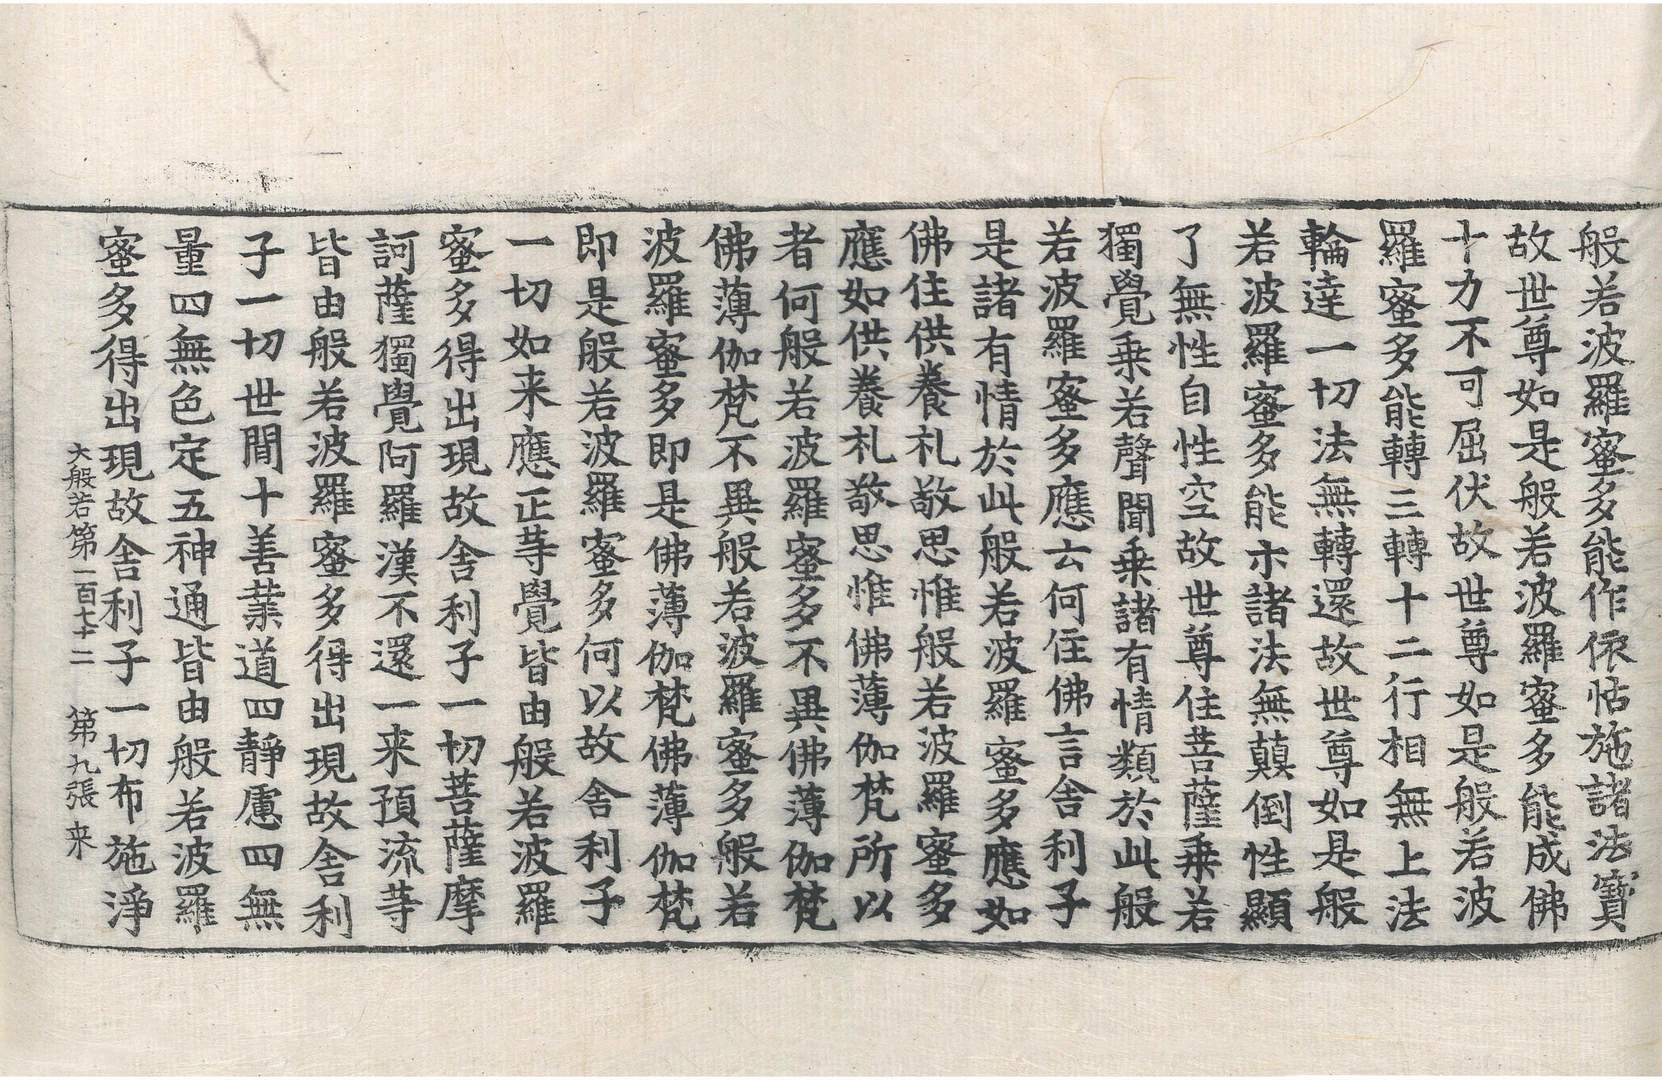 般若波羅蜜多能作依怙施諸法寶
故世尊如是般若波羅蜜多能成佛
十力不可屈伏故世尊如是般若波
羅蜜多能轉三轉十二行相無上法
輪達一切法無轉還故世尊如是般
若波羅蜜多能示諸法無顛倒性顯
了無性自性空故世尊住菩薩乗若
獨覺乗若聲聞乗諸有情類於此般
若波羅蜜多應云何住佛言舍利子
是諸有情於此般若波羅蜜多應如
佛住供養礼敬思惟般若波羅蜜多
應如供養礼敬思惟佛薄伽梵所以
者何般若波羅蜜多不異佛薄伽梵
佛薄伽梵不異般若波羅蜜多般若
波羅蜜多即是佛薄伽梵佛薄伽梵
即是般若波羅蜜多何以故舍利子
一切如来應正等覺皆由般若波羅
蜜多得出現故舍利子一切菩薩摩
訶薩獨覺阿羅漢不還一来預流等
皆由般若波羅蜜多得出現故舍利
子一切世間十善業道四靜慮四無
量四無色定五神通皆由般若波羅
蜜多得出現故舍利子一切布施淨
大般若第一百七十二 第九張 来